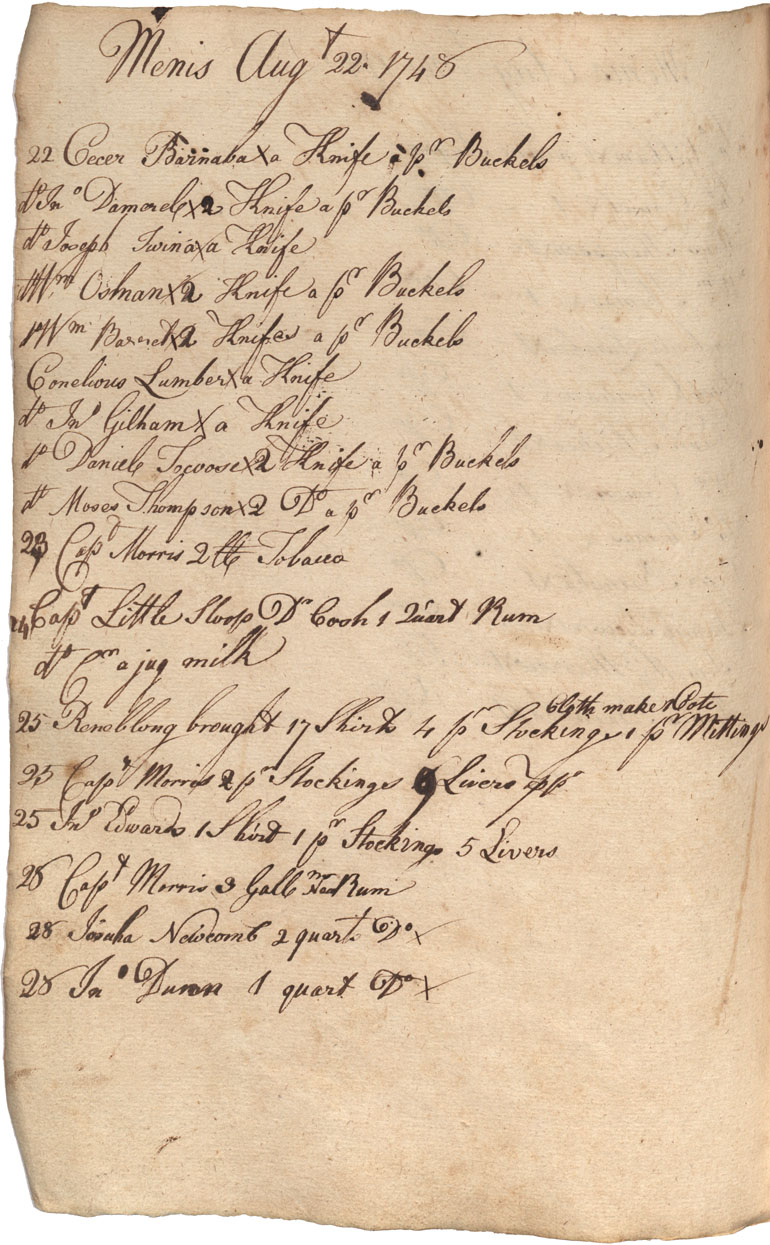 Menis Augt 22. 1748
22 Cecer Barnaba x a Knife a pr Buckels
do Jno Damerel x 2 Knife a pr Buckels
do Joseph Twina x a Knife
do Wm Osman x 2 Knife a pr Buckels
do Wm Barret x 2 Knifes a pr Buckels
Conelious Lumber x a Knife
do Jno Gilham x a Knife
do Daniel x 2 Knife a pr Buckels
do Moses Thompson x 2 Do a pr Buckels
23 Capt Morris 2 lb Tobacco
24 Capt Little Sloop Dr Cosh 1 Quart Rum
do a jug milk
25 brought 17 Shirts 4 pr Stockings 1 pr Mittings
maker
25 Capt Morris 2 pr Stockings 9 Livers ppr
25 Jno Edwards 1 Shirt 1 pr Stockings 5 Livers
28 Capt Morris 3 Gall Rum
28 Josuha Newcomb 2 quarts Do x
28 Jno Dunn 1 quart Do x